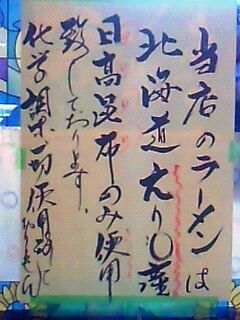 当店のラーメンは
北海道えりも産
日高昆布のみ使用
致しております。
化学調味料一切使用致しておりません